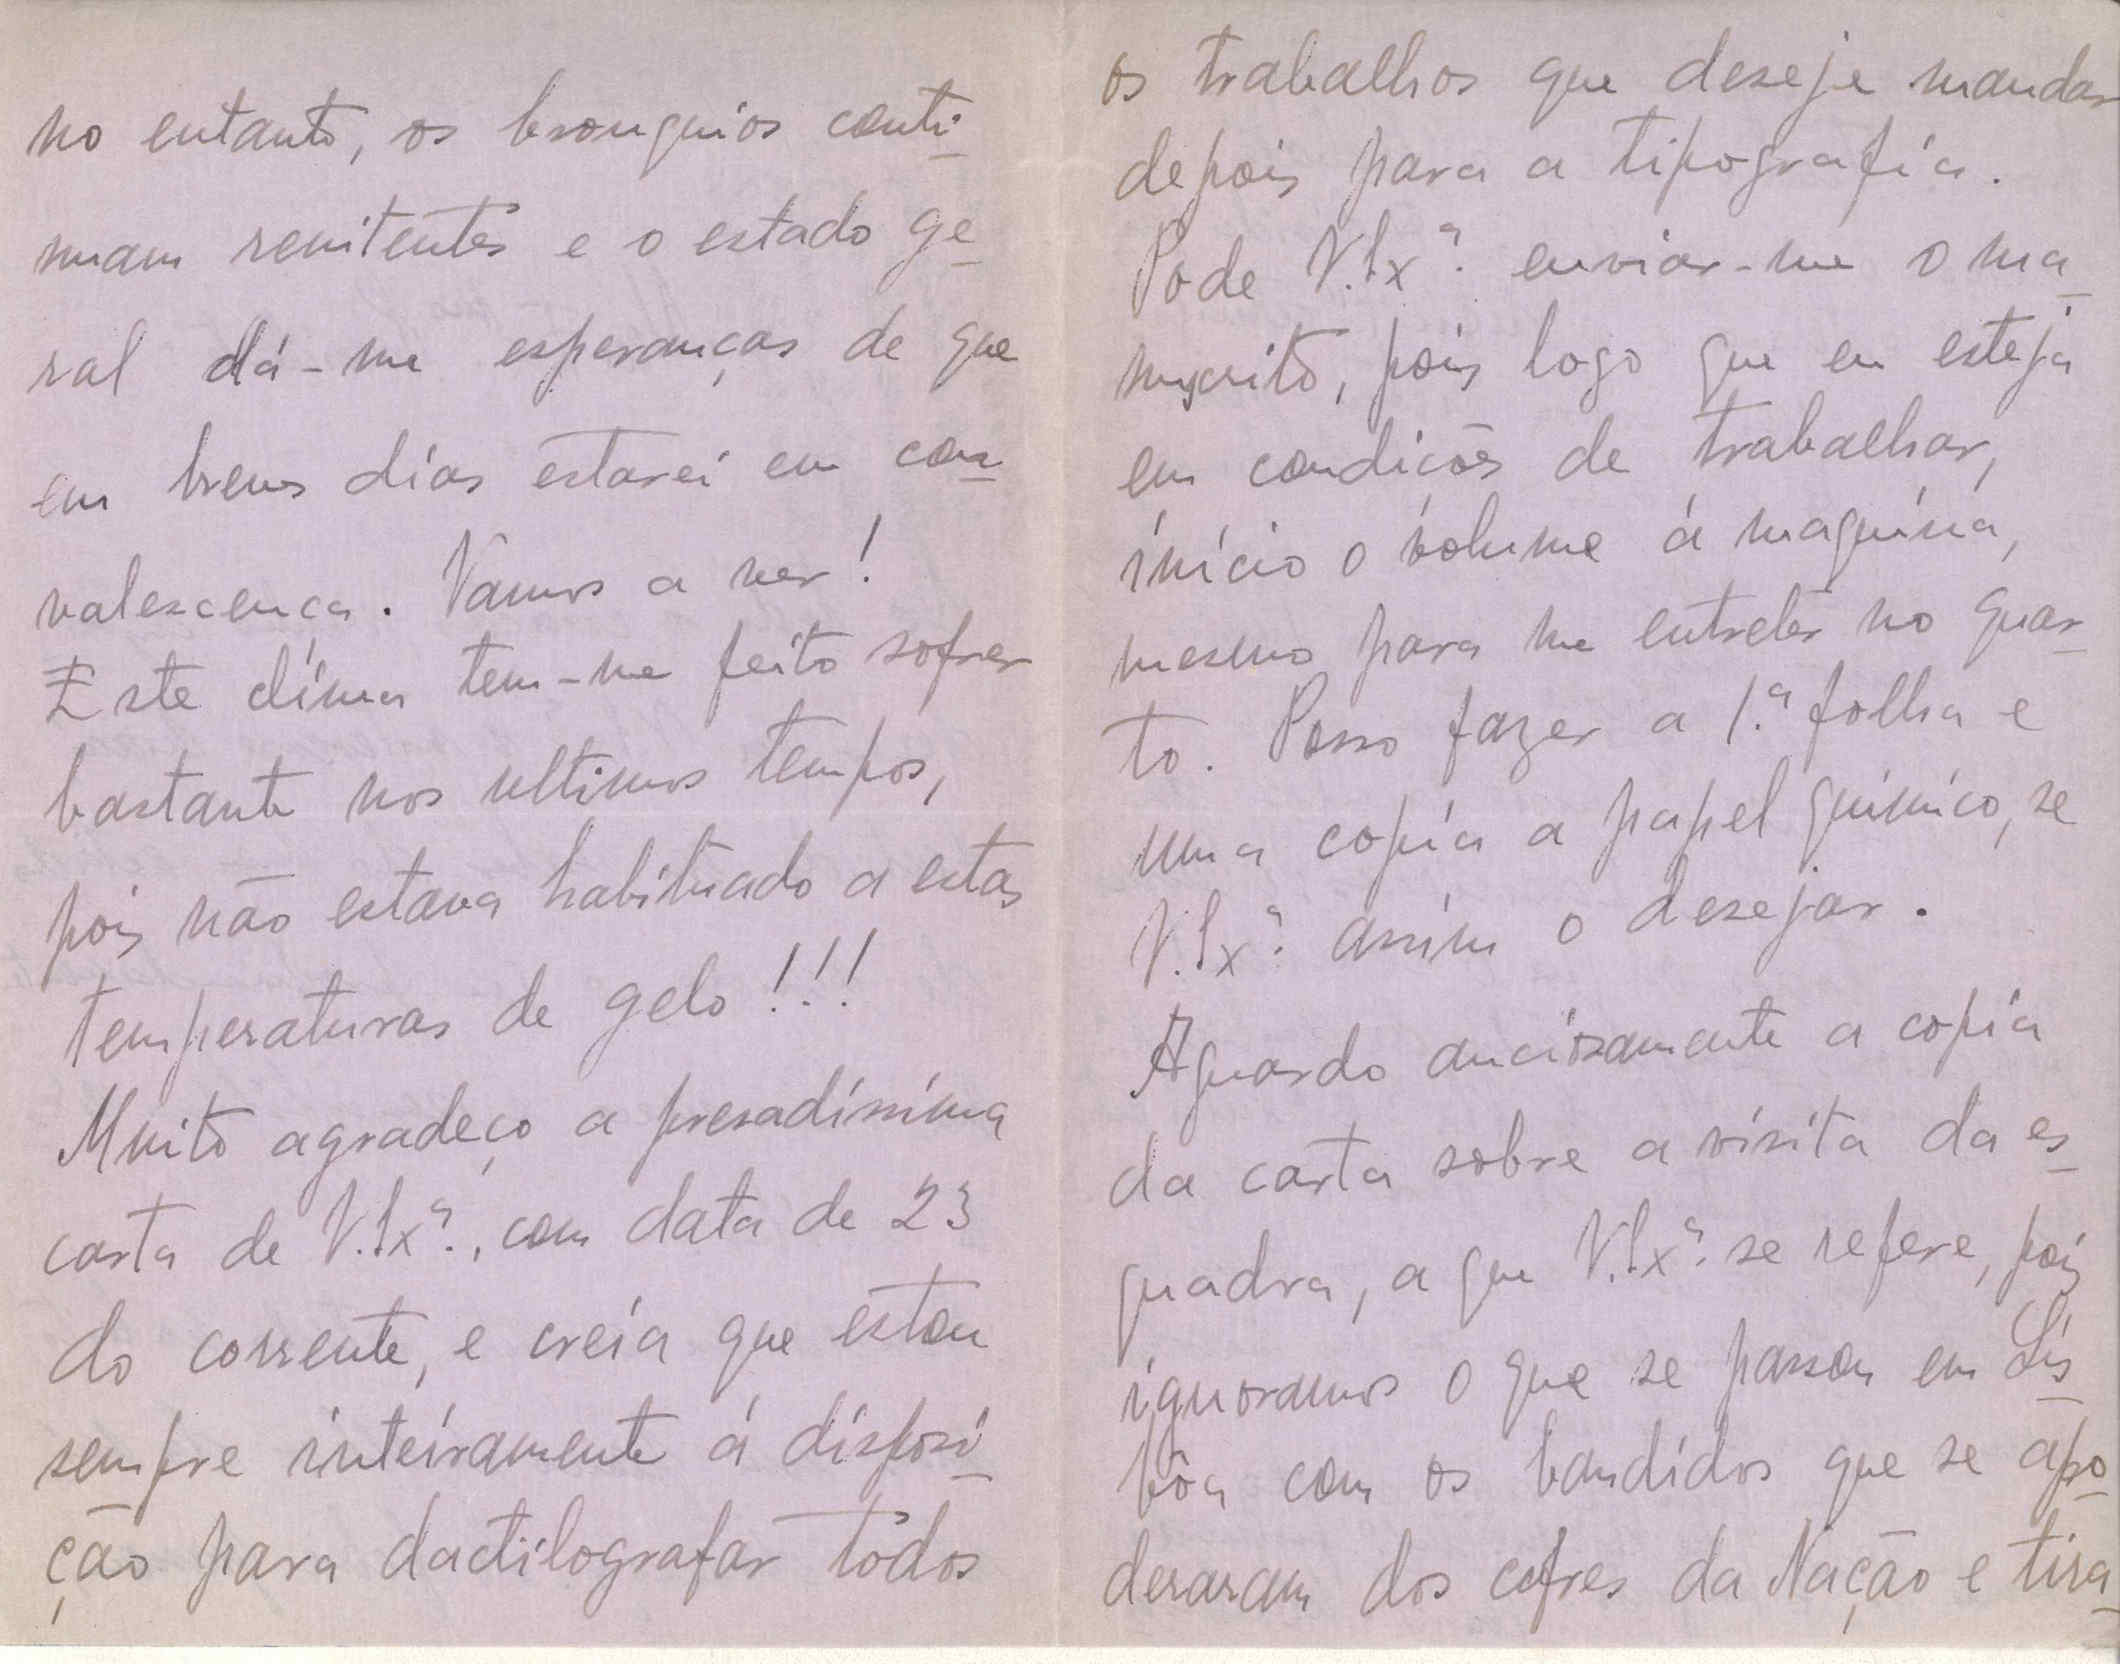 no entanto, os bronquios conti-
nuam renitentes e o estado ge-
ral dá-me esperanças de que
em breves días estarei em con-
valescença. Vamos a ver!
Este clíma tem-me feito sofrer
bastante nos ultimos tempos,
pois não estava habituado a estas
temperaturas de gelo!!!
Muito agradeço a presadíssima
carta de V.Exª., com data de 23
do corrente, e creía que estou
sempre inteíramente á disposi-
ção para dactilografar todos
os trabalhos que deseje mandar
depois para a tipografía.
Pode V.Exª. enviar-me o ma-
nuscrito, pois logo que eu esteja
em condicões de trabalhar,
início o volume á maquina,
mesmo para me entreter no quar-
to. Posso fazer a 1.ª folha e
uma copía a papel químico, se
V.Exª. assim o desejar.
Aguardo anciosamente a copía
da carta sobre a visita da es-
quadra, a que V.Exª. se refere, pois
ignoramos o que se passou em Lis-
bôa com os bandidos que se apo-
deraram dos cofres da Nação e tira-